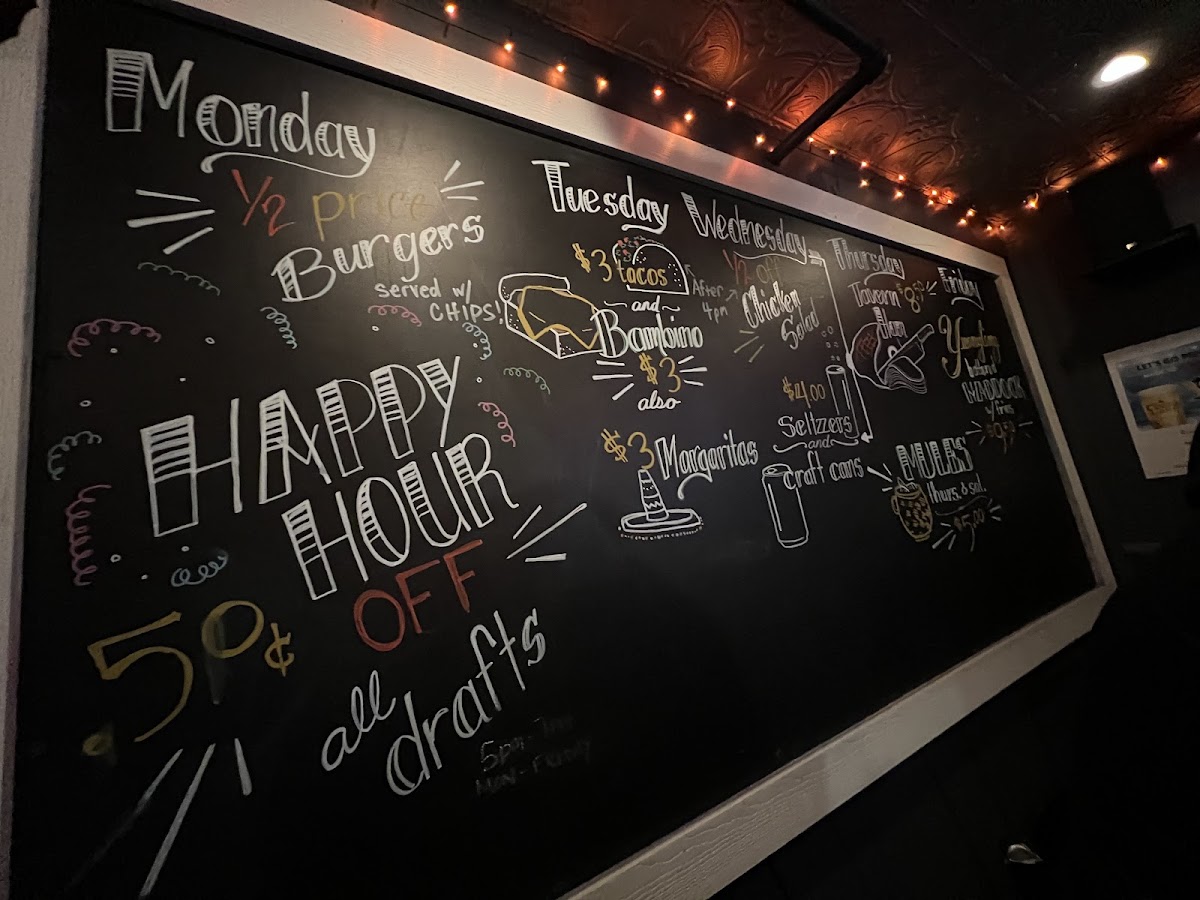 Monday
1/2 price
Burgers
served w/
CHIPS!
HAPPY
HOUR
50¢ OFF
all drafts
5pm-7pm
MON-FRIDAY
Tuesday
$3 tacos
and
Bambino
$3
also
$3 Margaritas
Wednesday
1/2 off
After
4pm
Chicken
Salad
$4.00
Seltzers
and
craft cans
Thursday
Tavern
Ham
Friday
Yuengling
battered
HADDOCK
w/ fries
MULES
thurs. & sat.
$5.00
LET'S GO